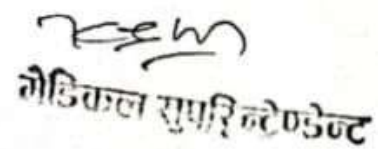 मैडिकल सुपरिन्टेण्डेन्ट